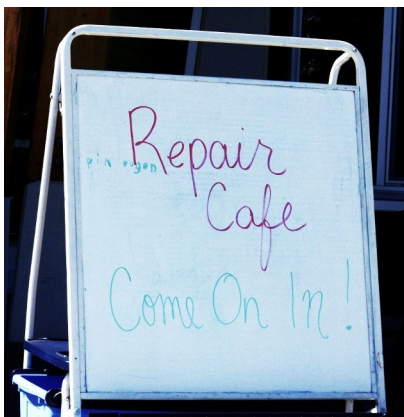 Repair
Cafe
Come On In!